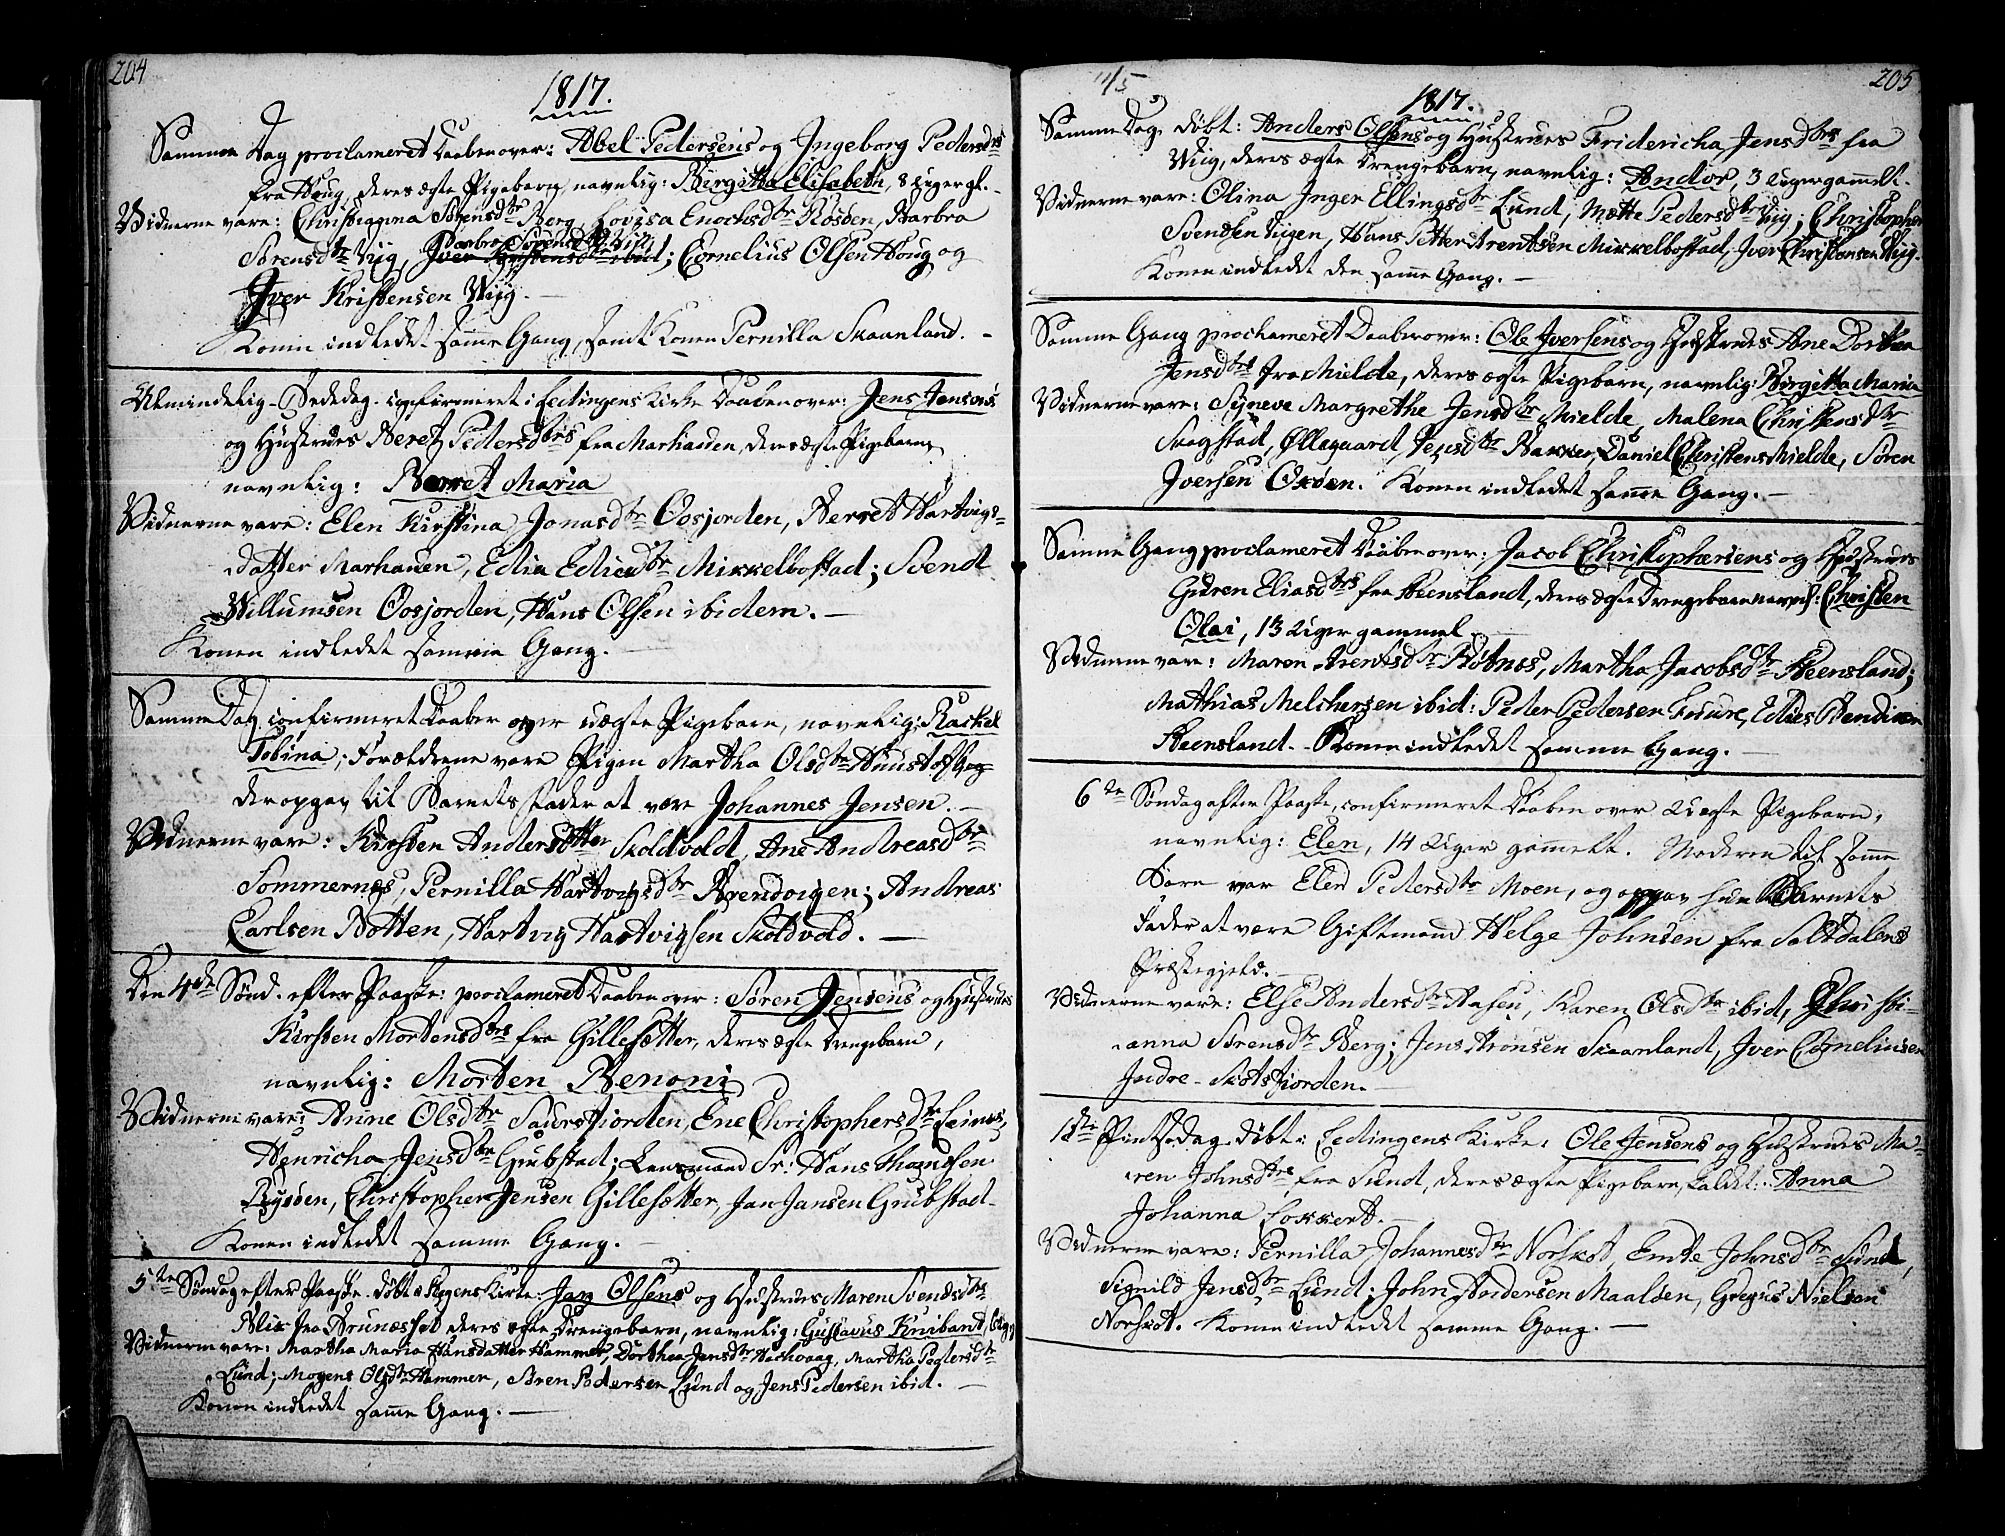 204
1817.
Samme Dag proclameret Daaben over: Abel Pedersens og Ingeborg Pedersdtrs
fra Houg, deres ægte Pigebarn, navnlig: Birgitha Elisabeth, 8 Uger gl. -
Vidnerne vare: Sørensdtr Berg, Lovisa Enochsdtr Røsøen, Barbra
Sørensdtr Viig, ibid; Cornelius Olsen Houg og
Iver Kristensen Wiig. -
Konen indledet samme Gang, samt Konen Pernilla Skaanland. -
Almindelig Bededag confirmeret i Lødingens Kirke Daaben over: Jens Jensens
og Hustrues Beret Pedersdtrs fra Markhauen, deres ægte Pigebarn,
navnlig: Berret Maria
Vidnerne vare: Elen Kirstina Jonasdtr Oosjorden, Berret Hartvigs-
datter Marhauen, Elia Mikkelbostad; Svend
Willumsen Oosjorden, Hans Olsen ibidem. -
Konen indledet samme Gang. -
Samme Dag confirmeret Daaben over uægte Pigebarn, navnlig: Rachel
Tobina; Forældrene vare Pigen Martha Olsdtr
der opgav til Barnets Fader at være Johannes Jensen. -
Vidnerne vare: Kirsten Andersdtter Skoldvold, Ane Andreasdtr
Sommernæs, Pernilla Hartvigsdtr Brendvigen; Andreas
Carlsen Botten, Hartvig Hartvigsen Skoldvold. -
Den 4de Sønd. efter Paaske: proclameret Daaben over: Søren Jensens og Hustrues
Kirsten Mortensdtrs fra Gillesætter, deres ægte Drengebarn,
navnlig: Morten Benoni
Vidnerne vare: Anne Olsdtr Ene Christophersdtr Leines,
Henricha Jensdtr Grubstad; Lensmand Sr: Hans Thomsen
Rysøen, Christopher Jensen Gillesætter, Jan Jansen Grubstad -
Konen indledet samme Gang. -
5te Søndag efter Paaske døbt Kirke: Jan Olsens og Hustrues Maren Svendsdtrs
fra deres ægte Drengebarn, navnlig: Gustavus
Vidnerne vare: Martha Maria Hansdatter Hammer, Dorthea Jensdtr Martha Pedersdtr
Lund; Mogens Olsdtr Hammer, Søren Pedersen Lund og Jens Pedersen ibid. -
Konen indledet samme Gang. -
205
1817.
Samme Dag døbt: Anders Olsens og Hustrues Fridericha Jensdtrs fra
Wiig, deres ægte Drengebarn, navnlig: Andor, 3 Uger gammelt.
Vidnerne vare: Olina Inger Ellingsdtr Lund, Mætte Pedersdtr Viig; Christopher
Svendsen Hans Petter Arentsen Mikkelbostad, Iver Christensen Wiig.
Konen indledet den samme Gang. -
Samme Gang proclameret Daaben over: Ole Iversens og Hustrues Ane Dorthea
Jensdtrs fra Mielde, deres ægte Pigebarn, navnlig: Birgitta Maria
Vidnerne vare: Syneve Margrethe Jensdtr Mielde, Malena Christensdtr
Øllegaard Jensdtr Bakken, Daniel Christens Mielde, Søren
Iversen Oxøen. Konen indledet samme Gang. -
Samme Gang proclameret Daaben over: Jacob Christophersens og Hustrues
Guren Eliasdtrs fra Steensland, deres ægte Drengebarn navnl: Christen
Olai, 13 Uger gammel
Vidnerne vare: Maren Arentsdtr Bøtnes, Martha Jacobsdtr Steensland;
Mathias Melchersen ibid: Peder Pedersen Elias
Steensland. - Konen indledet samme Gang. -
6te Søndag efter Paaske, confirmeret Daaben over Uægte Pigebarn,
navnlig: Elen, 14 Uger gammelt. Moderen til samme
Barn var Elen Pedersdtr Moen, og opgav hun Barnets
Fader at være Giftmand Helge Johnsen fra Saltdalens
Præstegjeld. -
Vidnerne vare: Else Andersdtr Aasen, Karen Olsdtr ibid, Christi-
anna Sørensdtr Berg; Jens Aronsen Skaanland, Iver Corneliusen
Indre-Skotsfiorden. -
1ste Pintsedag døbt i Lødingens Kirke: Ole Jensens og Hustrues Ma-
ren Johnsdtrs fra Sund, deres ægte Pigebarn, kaldet: Anna
Johanna Lokkert. -
Vidnerne vare: Pernilla Johannesdtr Norskot, Johnsdtr Sund,
Signild Jensdtr Lund; John Andersen Maalden, Gregus Nielsen
Norskot. Konen indledet samme Gang. -